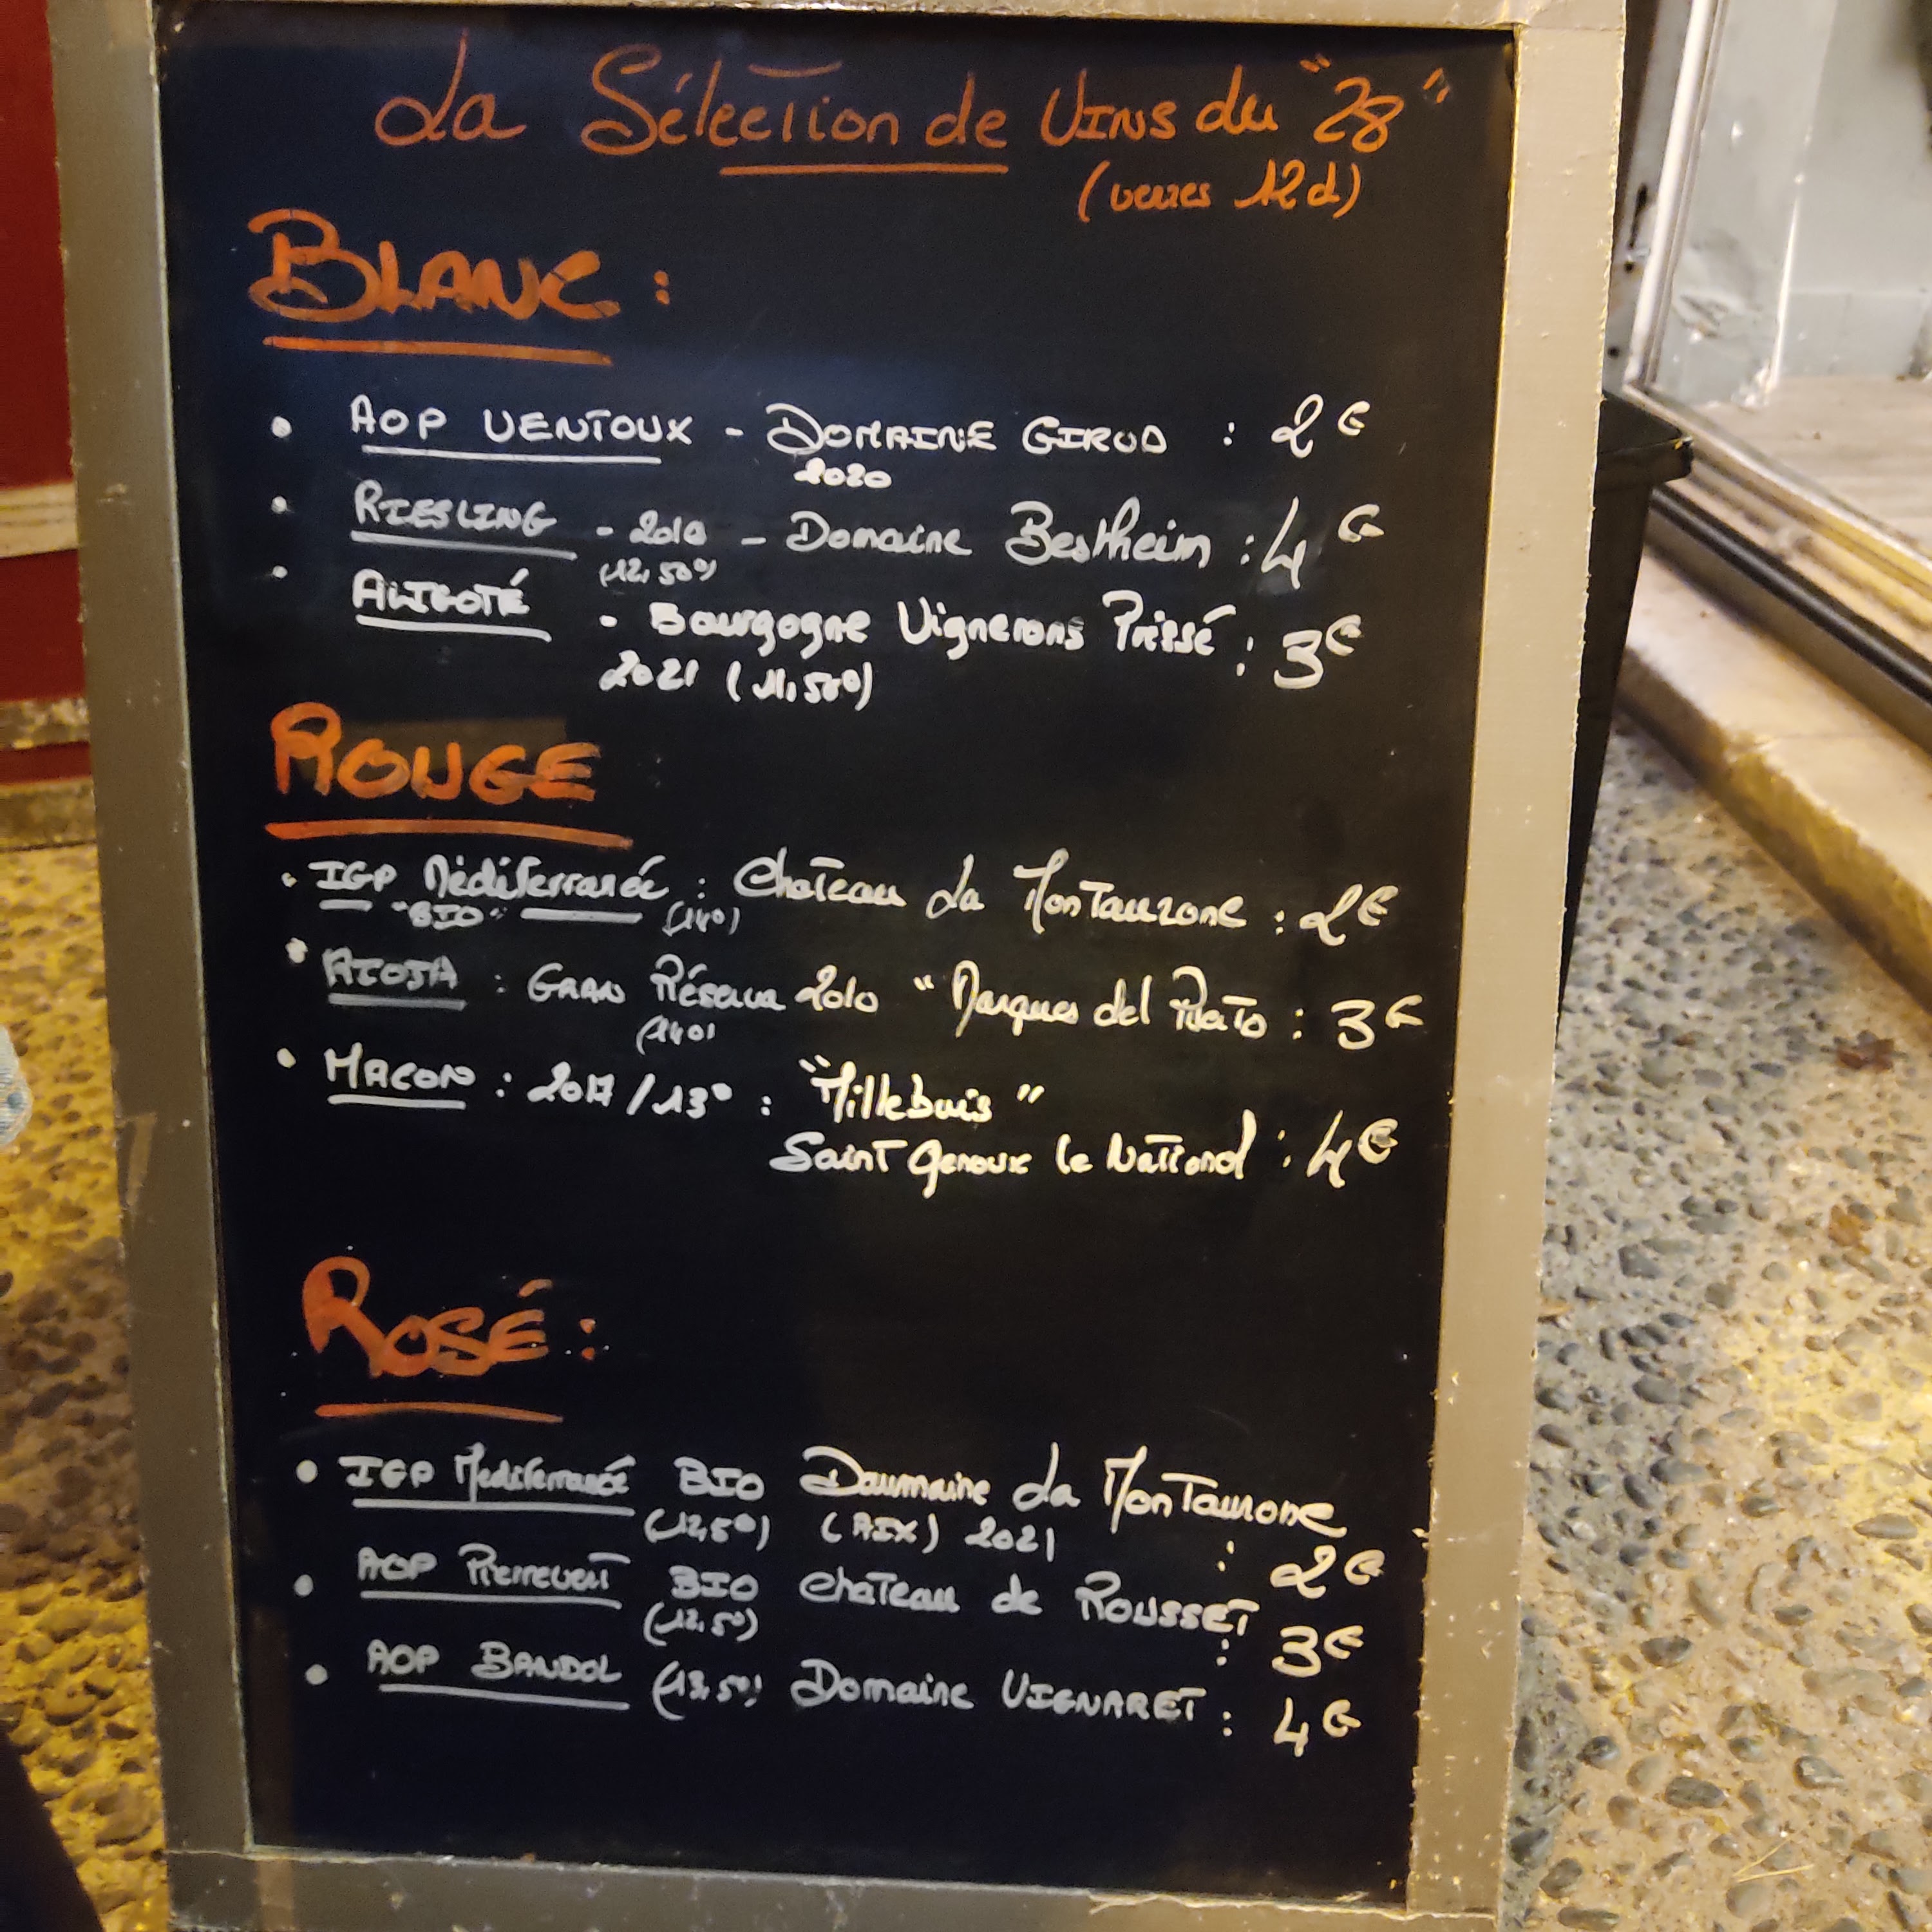 La Sélection de Vins du "28"
(verres 12cl)
BLANC :
• AOP VENTOUX - DOMAINE GIROD : 2€
2020
• RIESLING - 2010 - Domaine Bestheim : 4€
(12,50°)
• ALIGOTÉ - Bourgogne Vignerons Prissé : 3€
2021 (11,50°)
ROUGE
• IGP Méditerranée : Chateau La Montaurone : 2€
"BIO" (14°)
• RIOJA : GRAN Réserva 2010 "Marques del Prato : 3€
(14°)
• MACON : 2017 / 13° : "Millebuis"
Saint Genoux le National : 4€
ROSÉ :
• IGP Mediterranée BIO Daumaine La Montaurone
(12,5°) (AIX) 2021 : 2€
• AOP Pierrevert BIO Chateau de ROUSSET
(12,5°) : 3€
• AOP BANDOL (13,5°) Domaine VIGNARET : 4€